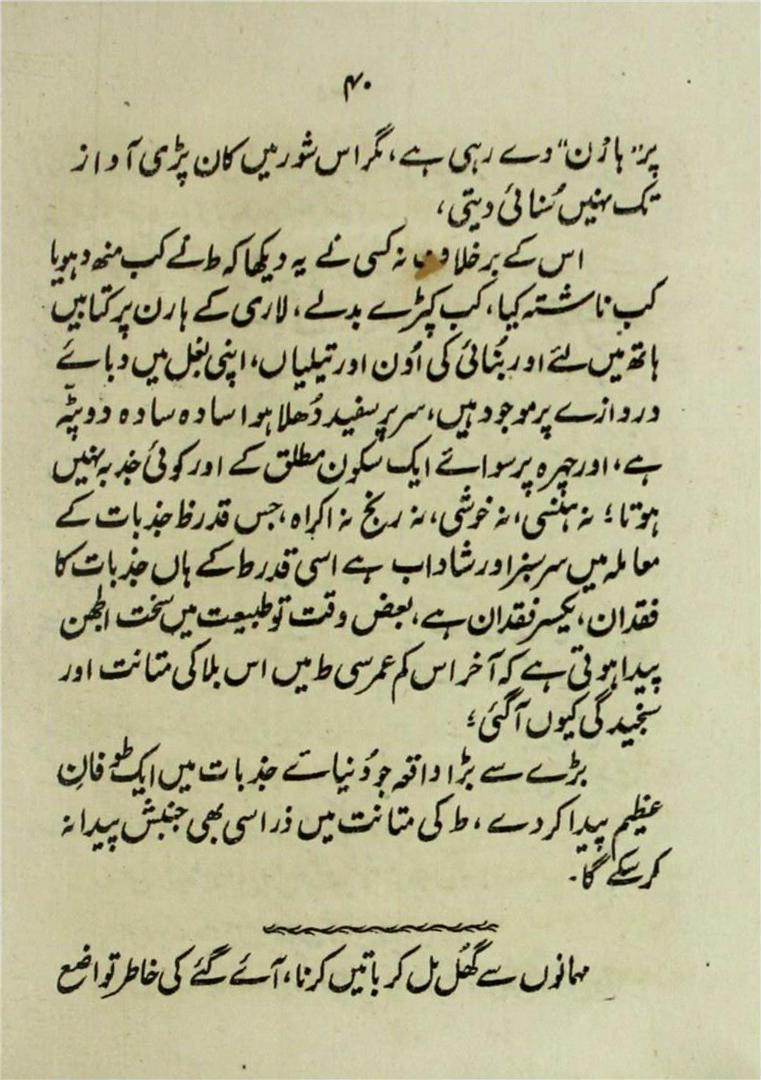 ۴۰
پر "ہارن" دے رہی ہے، مگر اس شور میں کان پڑی آواز
تک نہیں سُنائی دیتی،
اس کے برخلاف نہ کسی نے یہ دیکھا کہ ط نے کب منھ دہویا
کب ناشتہ کیا، کب کپڑے بدلے، لاری کے ہارن پر کتابیں
ہاتھ میں لئے اور بُنائی کی اُون اور تیلیاں، اپنی بغل میں دبائے
دروازے پر موجود ہیں، سر پر سفید دُھلا ہوا سادہ سادہ دوپٹہ
ہے، اور چہرہ پر سوائے ایک سکون مطلق کے اور کوئی جذبہ نہیں
ہوتا؛ نہ ہنسی، نہ خوشی، نہ رنج نہ اکراہ، جس قدر ظ جذبات کے
معاملہ میں سرسبز اور شاداب ہے اسی قدر ط کے ہاں جذبات کا
فقدان، یکسر فقدان ہے، بعض وقت تو طبیعت میں سخت الجھن
پیدا ہوتی ہے کہ آخر اس کم عمر سی ط میں اس بلا کی متانت اور
سنجیدگی کیوں آگئی؛
بڑے سے بڑا واقعہ جو دُنیائے جذبات میں ایک طوفانِ
عظیم پیدا کر دے، ط کی متانت میں ذرا سی بھی جنبش پیدا نہ
کر سکے گا۔
مہمانوں سے گھُل مل کر باتیں کرنا، آئے گئے کی خاطر تواضع